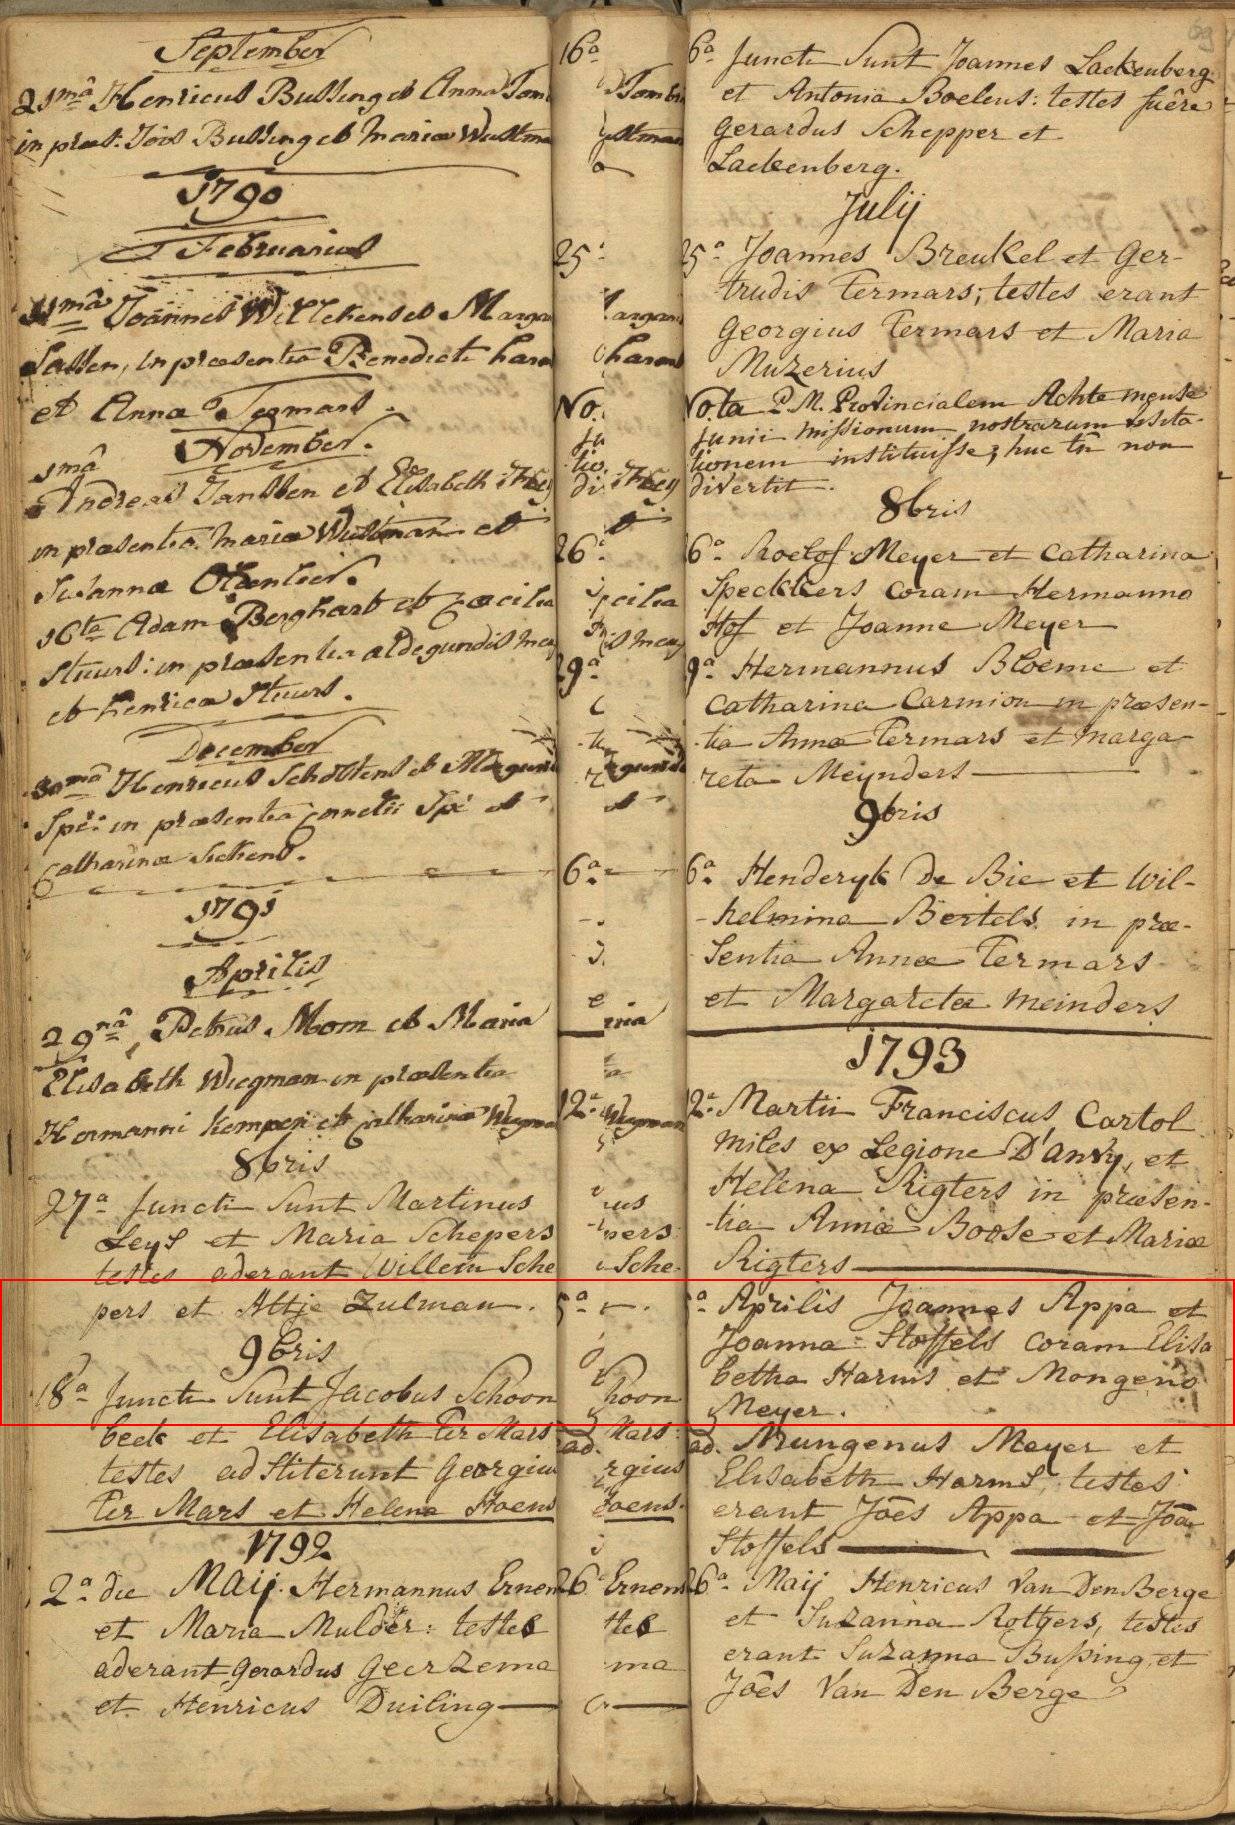 September
21mâ Henricus Bussing et Anna Tom
in præs: Jois Bussing et Maria Wustma
1790
Februarius
Joannes Willekens et Margar
Sassen, in præsentia Benedicti harm
et Anna Termars.
November.
1mâ
Andreas Janssen et Elisabeth
in præsentia Maria Wustman et
Susanna
16ta Adam Berghart et Cæcilia
Stuurs: in præsentia aldegundis Mey
et henrica Stuurs.
December
30mâ Henricus Scholtens et
in præsentia Cornelii et
Catharinæ
1791
Aprilis
29nâ, Petrus Mom et Maria
Elisabeth Wiegman in præsentia
Hermanni Kemper et Catharinæ Wiegman
8bris
27a Juncti Sunt Martinus
Leys et Maria Schepers
testes aderant Willem Sche
pers et Altje Zulman.
9bris
18a Juncti Sunt Jacobus Schoon
beek et Elisabeth Ter Mars
testes adstiterunt Georgius
Ter Mars et Helena Hoens
1792
2a die Maij. Hermannus Ernem
et Maria Mulder: testes
aderant Gerardus Geerzema
et Henricus Duiling
16a Juncti Sunt Joannes Lackenberg
et Antonia Boelens: testes fuêre
Gerardus Schepper et
Lackenberg.
Julij
25a Joannes Breukel et Ger-
trudis Termars; testes erant
Georgius Termars et Maria
Muzerius
Nota P. M. Provincialem Achte mense
Junii missionum nostrarum visita-
tionem instituisse, huc tn non
divertit.
8bris
26a Roelof Meyer et Catharina
Speckkers coram Hermanno
Hof et Joanne Meyer
29a Hermannus Bloeme et
Catharina Carmion in præsen-
tia Annæ Termars et Marga
reta Meynders
9bris
6a Henderyk De Bie et Wil-
helmina Bertels in præ-
sentia Annæ Termars
et Margaretæ Meinders
1793
12a Martii Franciscus Cartol
miles ex Legione D'anvy, et
Helena Rigters in præsen-
tia Annæ Boose et Mariæ
Rigters
5a Aprilis Joannes Appa et
Joanna Stoffels coram Elisa
betha Harms et Mongeno
Meyer.
ad. Mungenus Meyer et
Elisabeth Harms, testes
erant Jôes Appa et Jôa
Stoffels
26a Maij Henricus Van Den Berge
et Suzanna Rotgers, testes
erant Suzanna Bussing et
Jôes Van Den Berge